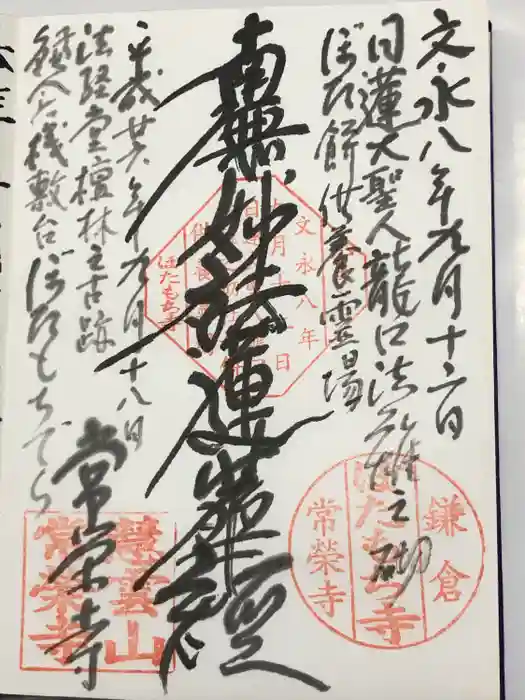 文永八年九月十二日
日蓮大聖人龍口法難之砌
ぼた餅供養霊場
南無妙法蓮華経
平成廿六年九月十八日
法経堂檀林之古跡
鎌倉桟敷台ぼたもちでら
常栄寺
文永八年
鎌倉
ぼたもち寺
常榮寺
慧雲山
常榮寺
ぼたもち寺